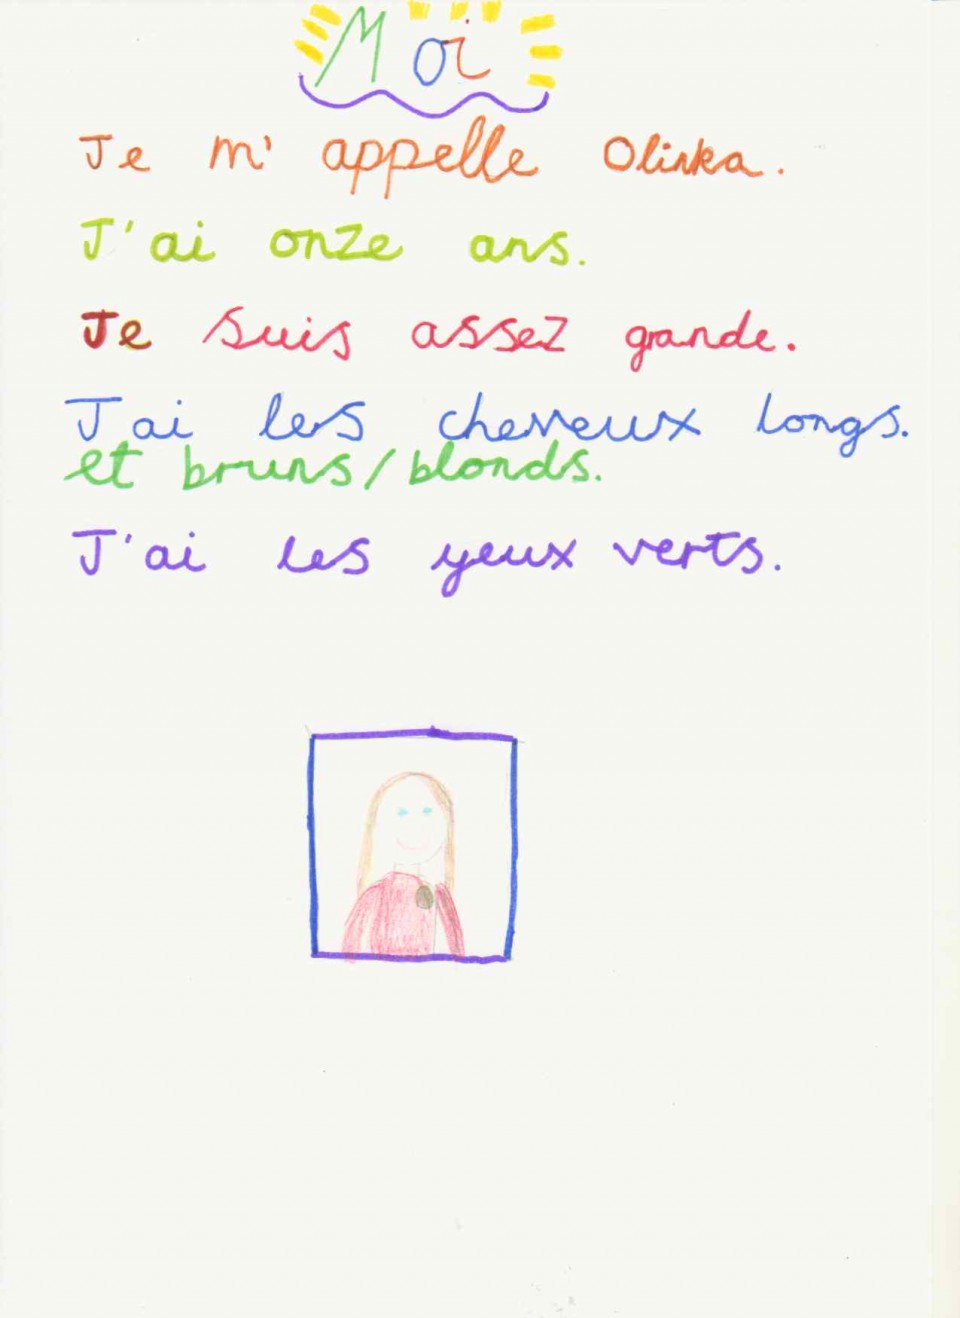 Moi
Je m'appelle Olinka.
J'ai onze ans.
Je suis assez grande.
J ai les cheveux longs.
et bruns/blonds.
J'ai les yeux verts.